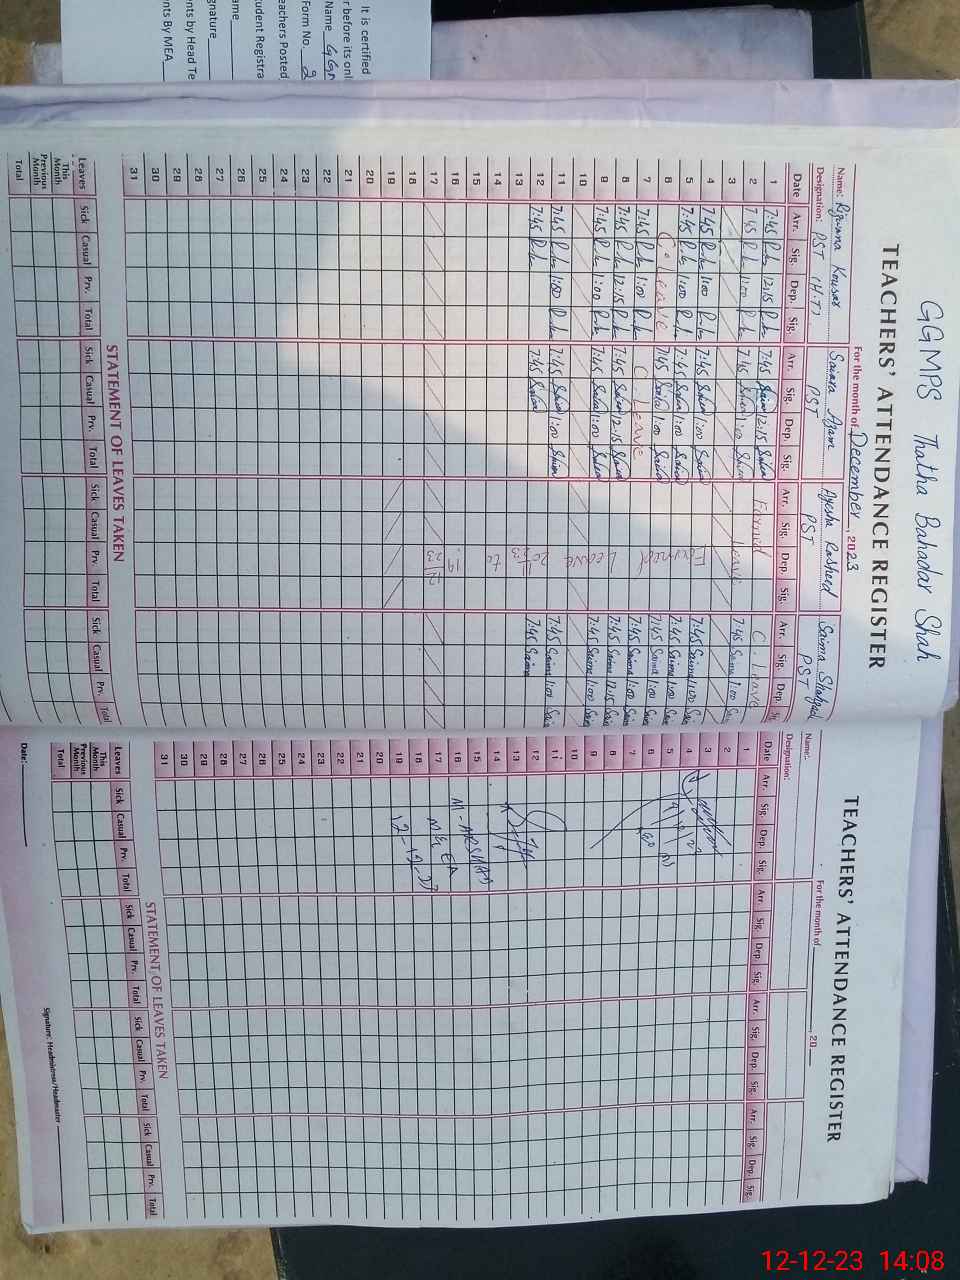 GGMPS Thatha Bahadar Shah
TEACHERS' ATTENDANCE REGISTER
For the month of December, 2023
Name: Rizwana Kousar Saira Azam Ayesha Rasheed Saima Shahzad
Designation: PST (H.T) PST PST PST
Date Arr. Sig. Dep. Sig. Arr. Sig. Dep. Sig. Arr. Sig. Dep. Sig. Arr. Sig. Dep. Sig.
1 7:45 12:15 7:45 Saira 12:15 Saira C. Leave
2 7:45 1:00 7:45 Saira 1:00 Saira Leave 7:45 Saima 1:00
3
4 7:45 1:00 7:45 Saira 1:00 Saira 7:45 Saima 1:00
5 7:45 1:00 7:45 Saira 1:00 Saira 7:45 Saima 1:00
6 C. Leave 7:45 Saira 1:00 Saira 7:45 Saima 1:00
7 7:45 1:00 C. Leave 7:45 Saima 1:00
8 7:45 12:15 7:45 Saira 12:15 Saira Leave 7:45 Saima 12:15
9 7:45 1:00 7:45 Saira 1:00 Saira 7:45 Saima 1:00
10
11 7:45 1:00 7:45 Saira 1:00 Saira 7:45 Saima 1:00
12 7:45 7:45 Saira 7:45 Saima
13
14 to
15
16 19
17 12 23
18
19
20
21
22
23
24
25
26
27
28
29
30
31
STATEMENT OF LEAVES TAKEN
Leaves Sick Casual Prv. Total Sick Casual Prv. Total Sick Casual Prv. Total Sick Casual Prv. Total
This Month
Previous Month
Total
It is certified
r before its onl
Name
Form No. 2
eachers Posted
tudent Registra
ame
gnature
nts by Head Te
nts By MEA
TEACHERS' ATTENDANCE REGISTER
For the month of , 20
Name:
Designation:
Date Arr. Sig. Dep. Sig. Arr. Sig. Dep. Sig. Arr. Sig. Dep. Sig. Arr. Sig. Dep. Sig.
1
2
3
4
5
6
7
8
9
10
11
12
13
14
15
16 M. ARSHAD
17 MEA
18
19 12-12-23
20
21
22
23
24
25
26
27
28
29
30
31
STATEMENT OF LEAVES TAKEN
Leaves Sick Casual Prv. Total Sick Casual Prv. Total Sick Casual Prv. Total Sick Casual Prv. Total
This Month
Previous Month
Total
Date: Signature: Headmistress/Headmaster
12-12-23 14:08